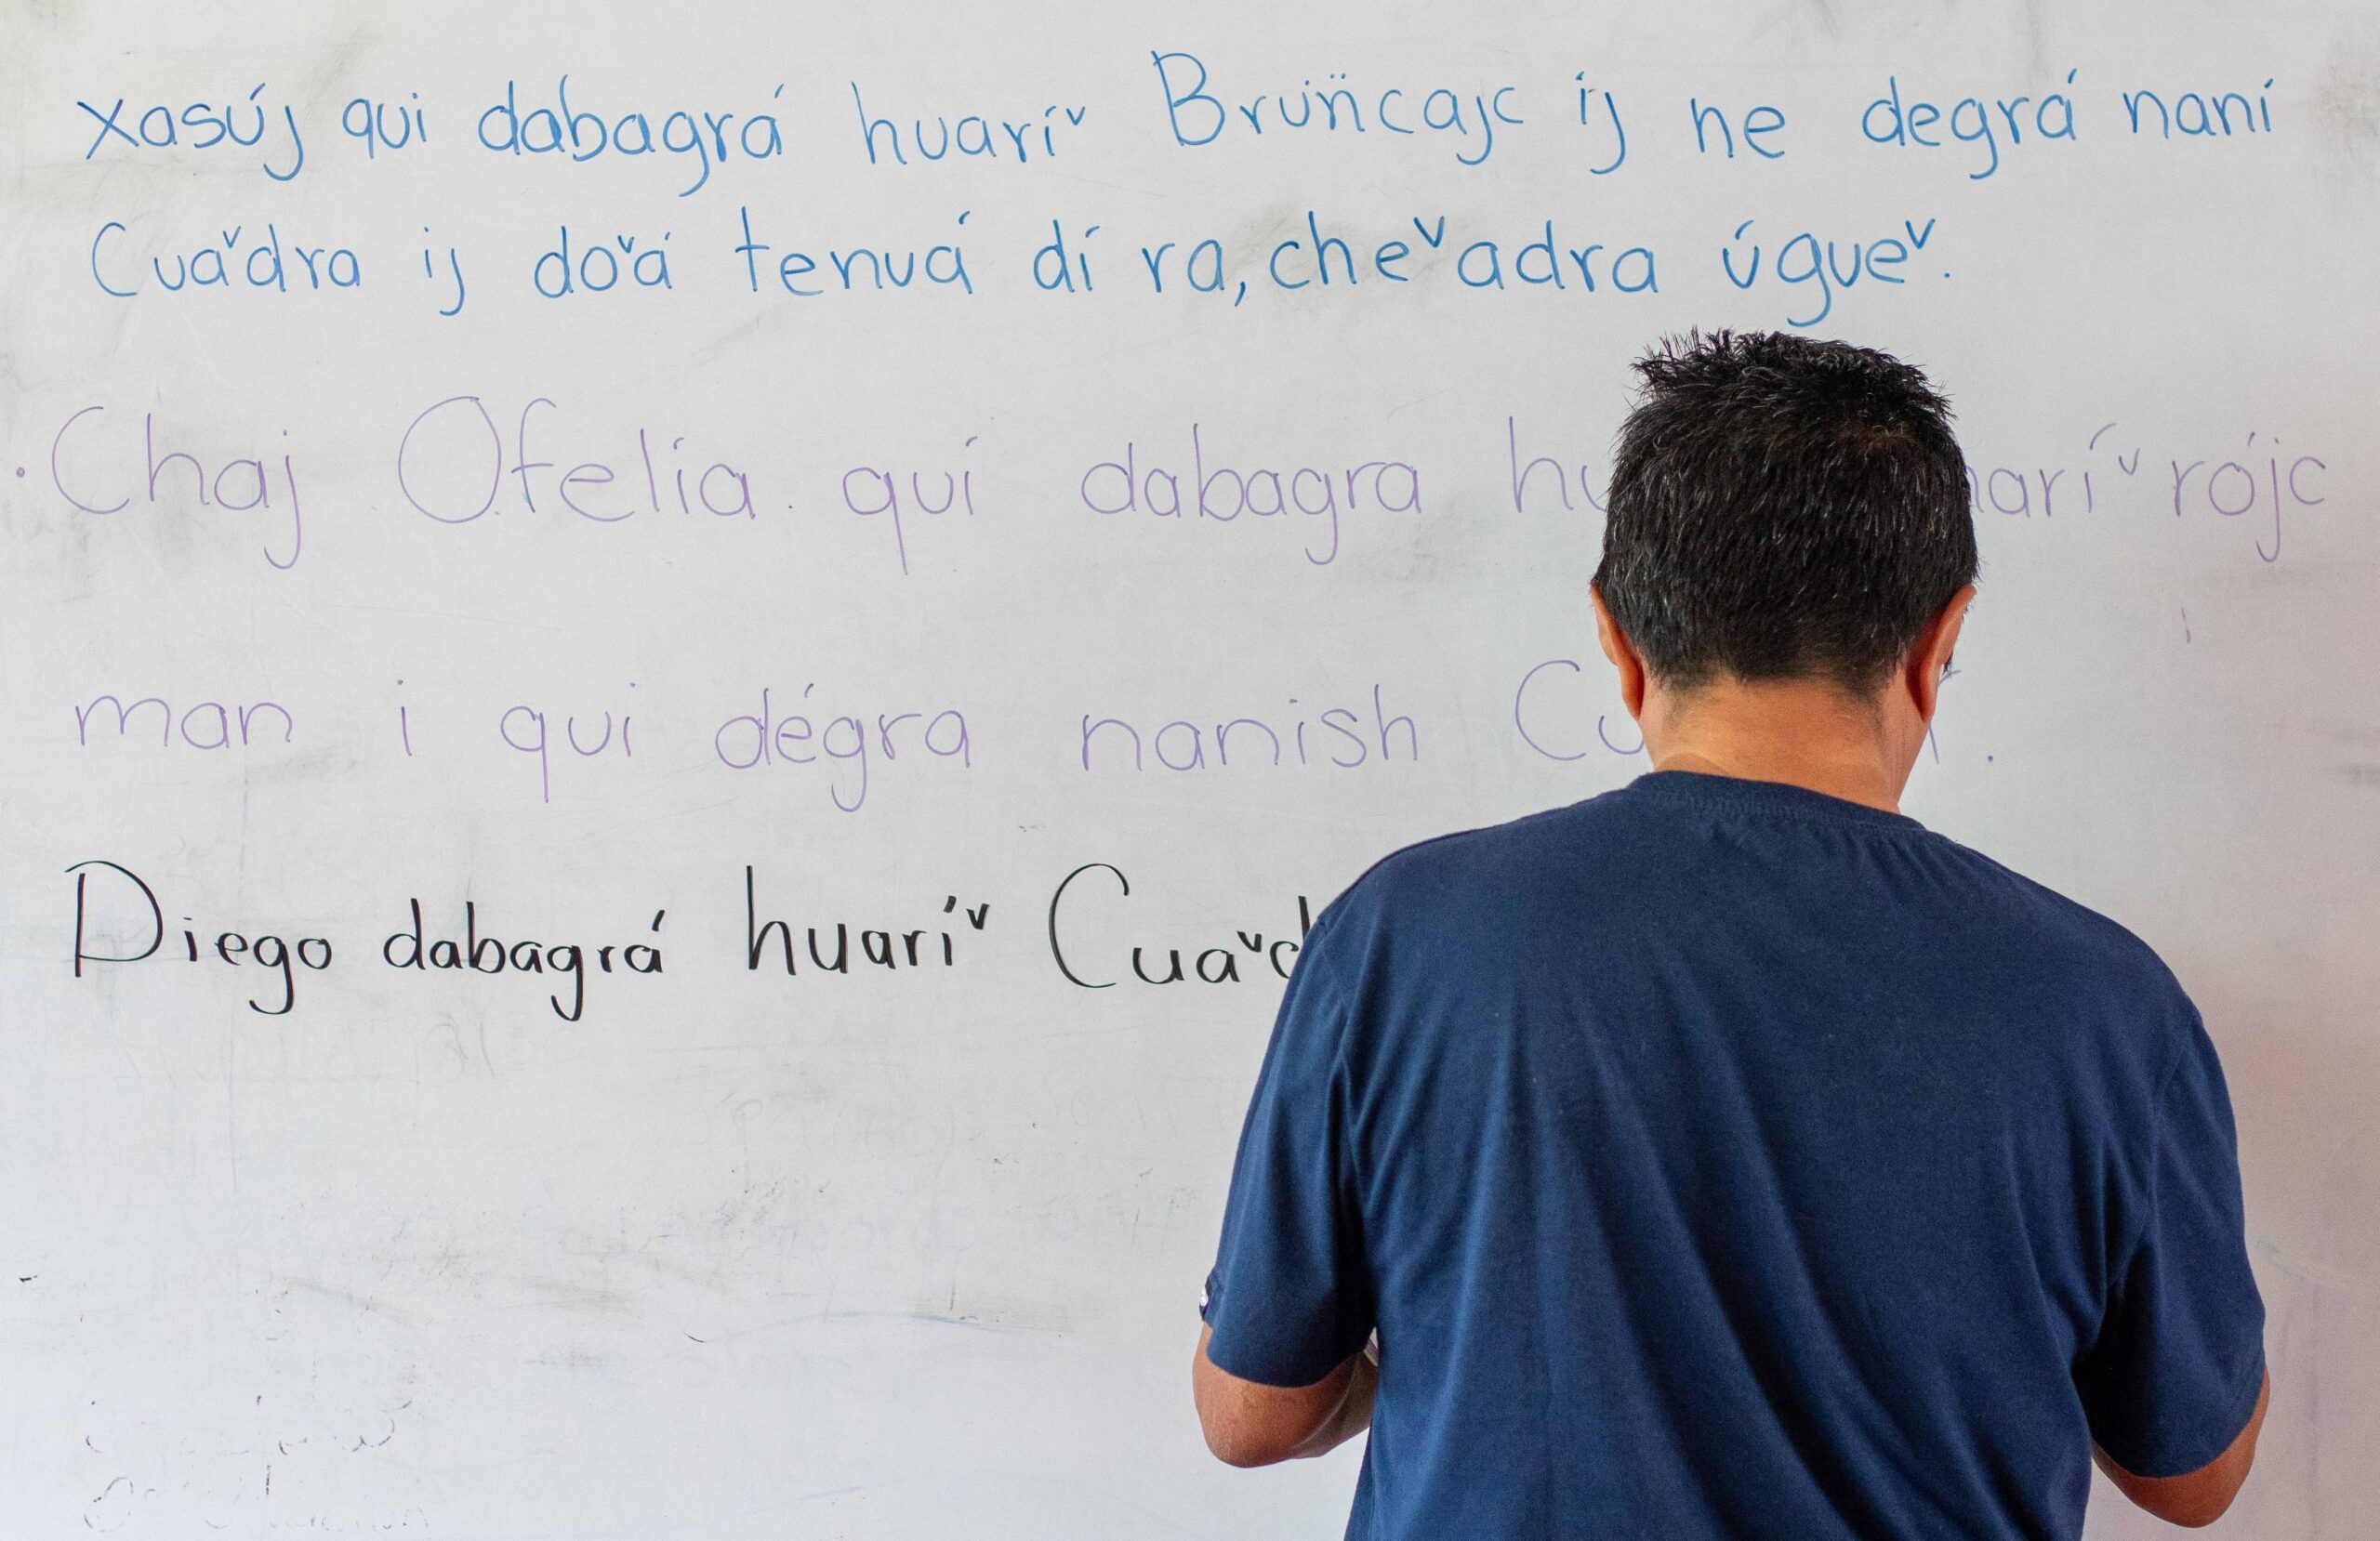 xasúj qui dabagrá huaríˇ Brün̈cajc ij ne degrá naní
Cuaˇdra ij doˇá tenuá dí ra, cheˇadra úgueˇ.
· Chaj Ofelia qui dabagra rójc
man i qui dégra nanish
Diego dabagrá huaríˇ